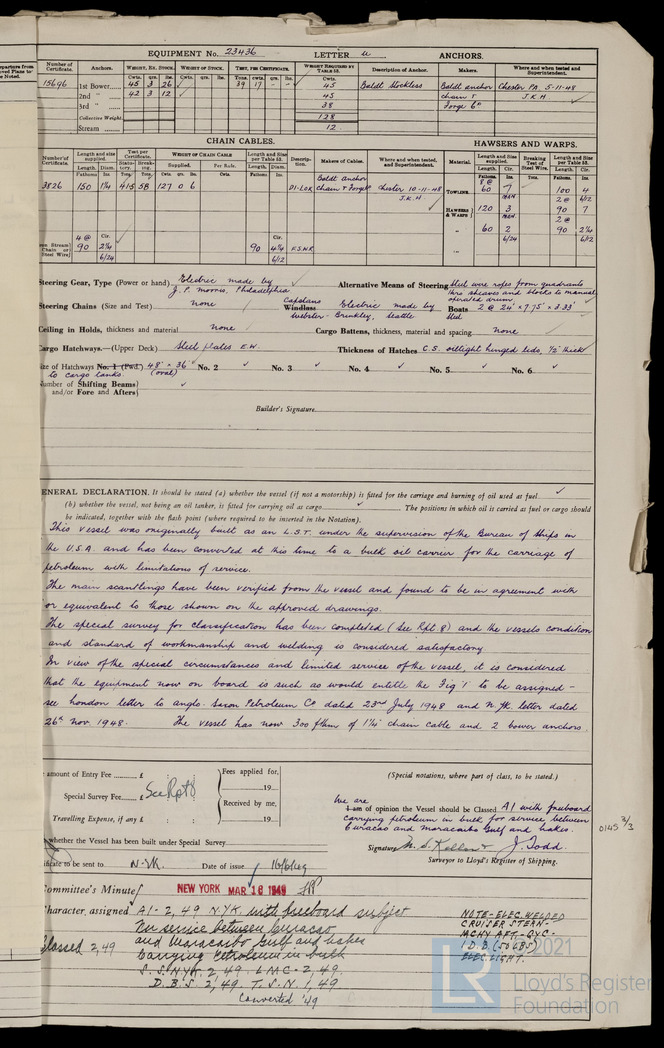 EQUIPMENT No. 23436 LETTER u ANCHORS.
Number of Certificate. Anchors. WEIGHT, EX. STOCK. WEIGHT OF STOCK. TEST, PER CERTIFICATE. WEIGHT REQUIRED BY TABLE 53. Description of Anchor. Makers. Where and when tested and Superintendent.
Cwts. qrs. lbs. Cwts. qrs. lbs. Tons. cwts. qrs. lbs. Cwts.
15696 1st Bower 45 3 26 39 17 - - 45 Baldt Stockless Baldt anchor Chester PA. 5-11-48
2nd " 42 3 12 45 chain & J.K.H
3rd " 38 Forge Co
Collective Weight. 128
Stream 12
CHAIN CABLES. HAWSERS AND WARPS.
Number of Certificate. Length and size supplied. Test per Certificate. WEIGHT OF CHAIN CABLE Length and Size per Table 53. Description. Makers of Cables. Where and when tested, and Superintendent. Material. Length and Size supplied. Breaking Test of Steel Wire. Length and Size per Table 53.
Length. Diam. Supplied. Per Rule. Length. Diam. Length. Cir. Length. Cir.
3826 150 1¼ 415 58 127 0 6 DI-LOK Baldt anchor chain & Forge Co Chester 10-11-48
J.K.H
TOWLINE 60 7 100 4
HAWSERS & WARPS 120 3 90 7
" 60 2 90 2¼
6/24 6/12
90 2¼ 90 4¼ F.S.W.R
6/24 6/12
Steering Gear, Type (Power or hand) Electric made by J. P. Morris Philadelphia
Alternative Means of Steering Steel wire ropes from quadrants thro sheaves and blocks to manual operated drum
Steering Chains (Size and Test) none Capstans Windlass Electric made by Webster-Brinkley, Seattle Boats 2 @ 24' × 7.75' × 3.33' Steel
Ceiling in Holds, thickness and material none Cargo Battens, thickness, material and spacing none
Cargo Hatchways.—(Upper Deck) Steel plates E.W. Thickness of Hatches C.S. oiltight hinged lids, 1/2" thick
Size of Hatchways No. 1 (Fwd.) 48" × 36" (oval) No. 2 No. 3 No. 4 No. 5 No. 6
to cargo tanks.
Number of Shifting Beams and/or Fore and Afters
Builder's Signature
GENERAL DECLARATION. It should be stated (a) whether the vessel (if not a motorship) is fitted for the carriage and burning of oil used as fuel
(b) whether the vessel, not being an oil tanker, is fitted for carrying oil as cargo. The positions in which oil is carried as fuel or cargo should
be indicated, together with the flash point (where required to be inserted in the Notation).
This vessel was originally built as an L.S.T. under the supervision of the Bureau of Ships in
the U.S.A. and has been converted at this time to a bulk oil carrier for the carriage of
petroleum with limitations of service.
The main scantlings have been verified from the vessel and found to be in agreement with
or equivalent to those shown on the approved drawings.
The special survey for classification has been completed (see Rpt 8) and the vessels condition
and standard of workmanship and welding is considered satisfactory
In view of the special circumstances and limited service of the vessel, it is considered
that the equipment now on board is such as would entitle the Fig '1' to be assigned -
see London letter to Anglo-Saxon Petroleum Co dated 23rd July 1948 and N.Yk. letter dated
26th Nov. 1948. The vessel has now 300 fthm of 1¼" chain cable and 2 bower anchors.
amount of Entry Fee £ : : Fees applied for, 19
Special Survey Fee £ See Rpt 8
Travelling Expense, if any £ : : Received by me, 19
(Special notations, where part of class, to be stated.)
We are
I am of opinion the Vessel should be Classed A1 with freeboard
carrying petroleum in bulk for service between
Curacao and Maracaibo Gulf and Lakes.
Signature J. Todd.
Surveyor to Lloyd's Register of Shipping.
whether the Vessel has been built under Special Survey
ficate to be sent to N.YK. Date of issue 16/6/49
Committee's Minute NEW YORK MAR 16 1949
Character assigned A1 - 2,49 N.YK. with freeboard subject
For service between Curacao
and Maracaibo Gulf and Lakes
Classed 2,49
Carrying Petroleum in bulk
S.S. NYK. 2,49 LMC - 2,49.
D.B.S. 2,49. T.S.N. 1,49
Converted '49
NOTE - ELEC. WELDED
CRUISER STERN -
MCHY AFT.
1 D.B. (50 LBS)
ELEC. LIGHT.
0145 2/3
© 2021
LR
Lloyd's Register
Foundation